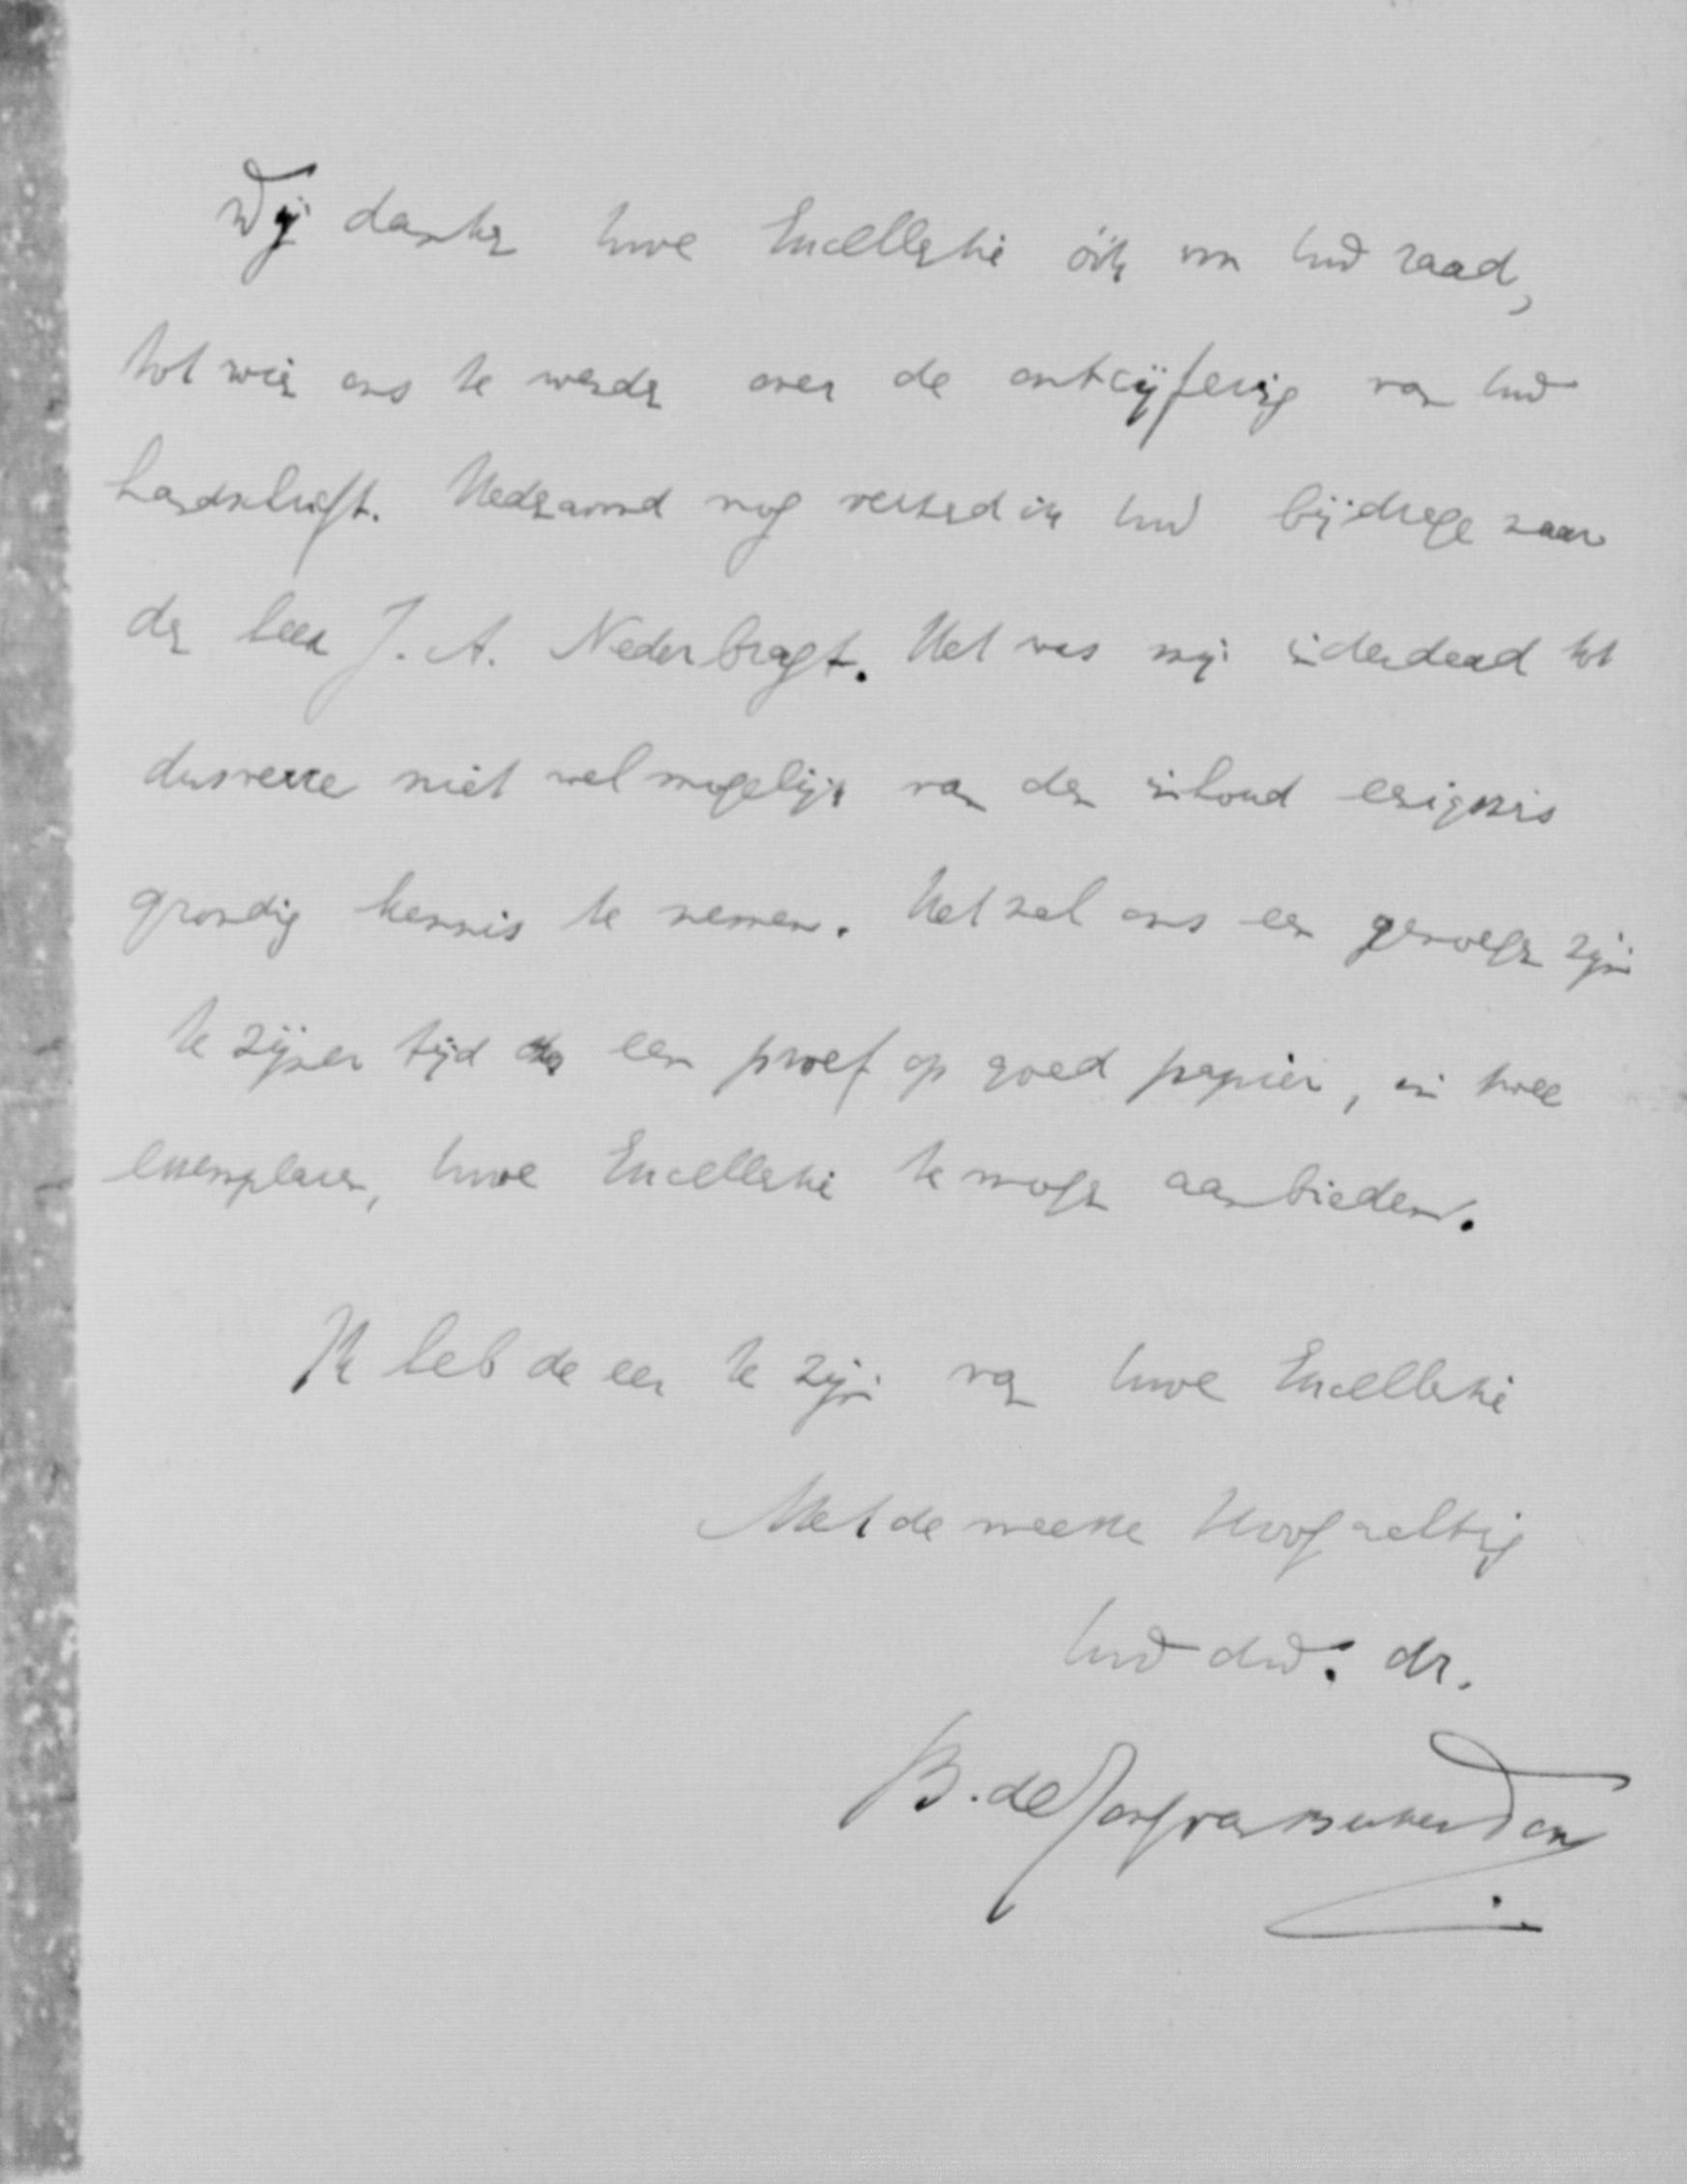 Wij danken Uwe Excellentie óók om Uw raad,
tot wien ons te wenden over de ontcijfering van Uw
handschrift. Hedenavond nog verzend ik Uw bijdrage naar
den heer J. A. Nederbragt. Het was mij inderdaad tot
dusverre niet wel mogelijk van den inhoud enigszins
grondig kennis te nemen. Het zal ons een genoegen zijn
te zijner tijd een proef op goed papier, in twee
exemplaren, Uwe Excellentie te mogen aanbieden.
Ik heb de eer te zijn van Uwe Excellentie
Met de meeste Hoogachting
Uw dw. dr.
B. de Jong van Beek en Donk